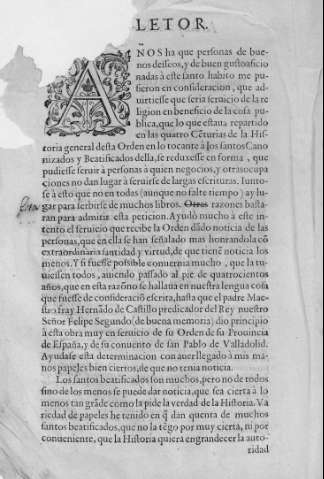 LETOR.
AÑOS ha que personas de bue-
nos desseos, y de buen gusto aficio
nadas à este santo habito me pu-
sieron en consideracion, que ad-
uirtiesse que seria seruicio de la re
ligion en beneficio de la cosa pu-
blica, que lo que estaua repartido
en las quatro Cẽturias de la His-
toria general desta Orden en lo tocante à los santos Cano
nizados y Beatificados della, se reduxesse en forma, que
pudiesse seruir à personas à quien negocios, y otras ocupa
ciones no dan lugar à seruirse de largas escrituras. Iunto-
se à esto que no en todas (aunque no falte tiempo) ay lu-
gar para seruirse de muchos libros. Otras razones basta-
ran para admitir esta peticion. Ayudò mucho à este in-
tento el seruicio que recibe la Orden dãdo noticia de las
personas, que en ella se han señalado mas honrandola cõ
extraordinaria santidad y virtud, de que tienẽ noticia los
menos. Y si fuesse possible conuernia mucho, que la tu-
uiessen todos, auiendo passado al pie de quatrocientos
años, que en esta razõ no se hallaua en nuestra lengua cosa
que fuesse de consideraciõ escrita, hasta que el padre Mae-
stro fray Hernãdo de Castillo predicador del Rey nuestro
Señor Felipe Segundo (de buena memoria) dio principio
à esta obra muy en seruicio de su Orden de su Prouincia
de España, y de su conuento de san Pablo de Valladolid.
Ayudase esta determinacion con auer llegado à mis ma-
nos papeles bien ciertos, de que no tenia noticia.
Los santos beatificados son muchos, pero no de todos
sino de los menos se puede dar noticia, que sea cierta à lo
menos tan grãde como la pide la verdad de la Historia. Va
riedad de papeles he tenido en q̃ dan quenta de muchos
santos beatificados, que no la tẽgo por muy cierta, ni por
conueniente, que la Historia quiera grandecer la auto-
ridad